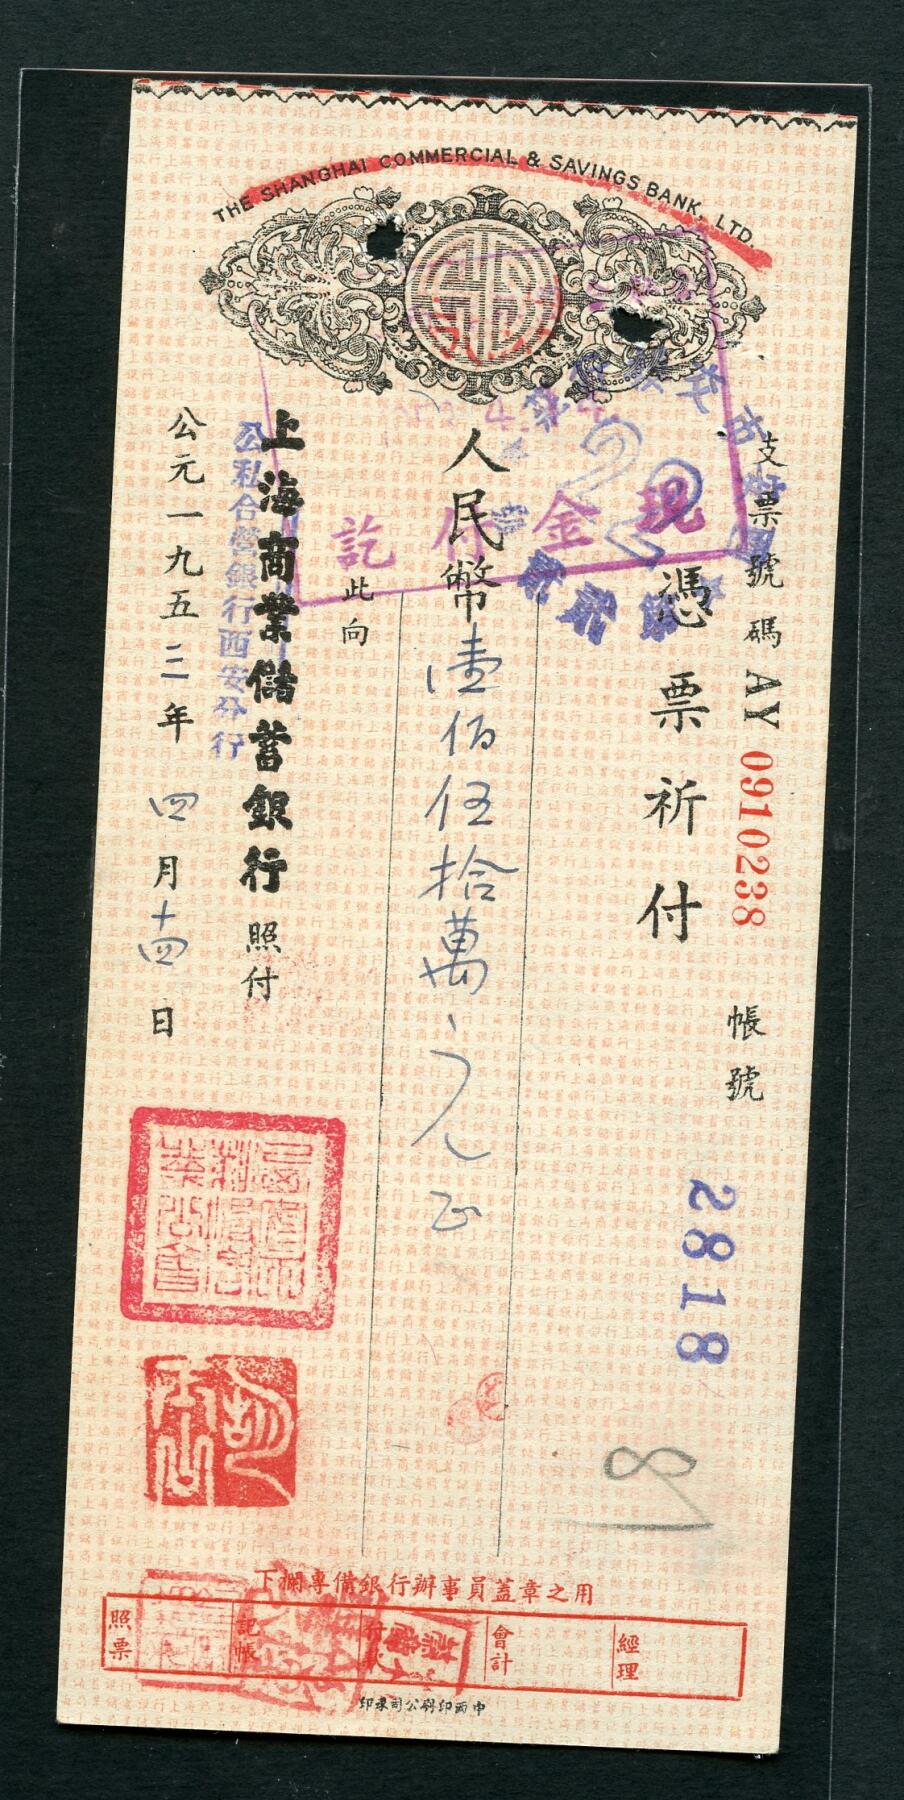 THE SHANGHAI COMMERCIAL & SAVINGS BANK, LTD.
支票號碼 AY 0910238
帳號 2818
憑票祈付
人民幣壹佰伍拾萬元正
此向
上海商業儲蓄銀行照付
公私合營銀行西安分行
公元一九五三年四月十四日
現金付訖
22
18
下欄專備銀行辦事員蓋章之用
經理
會計
付款
記帳
照票
中西印刷公司承印